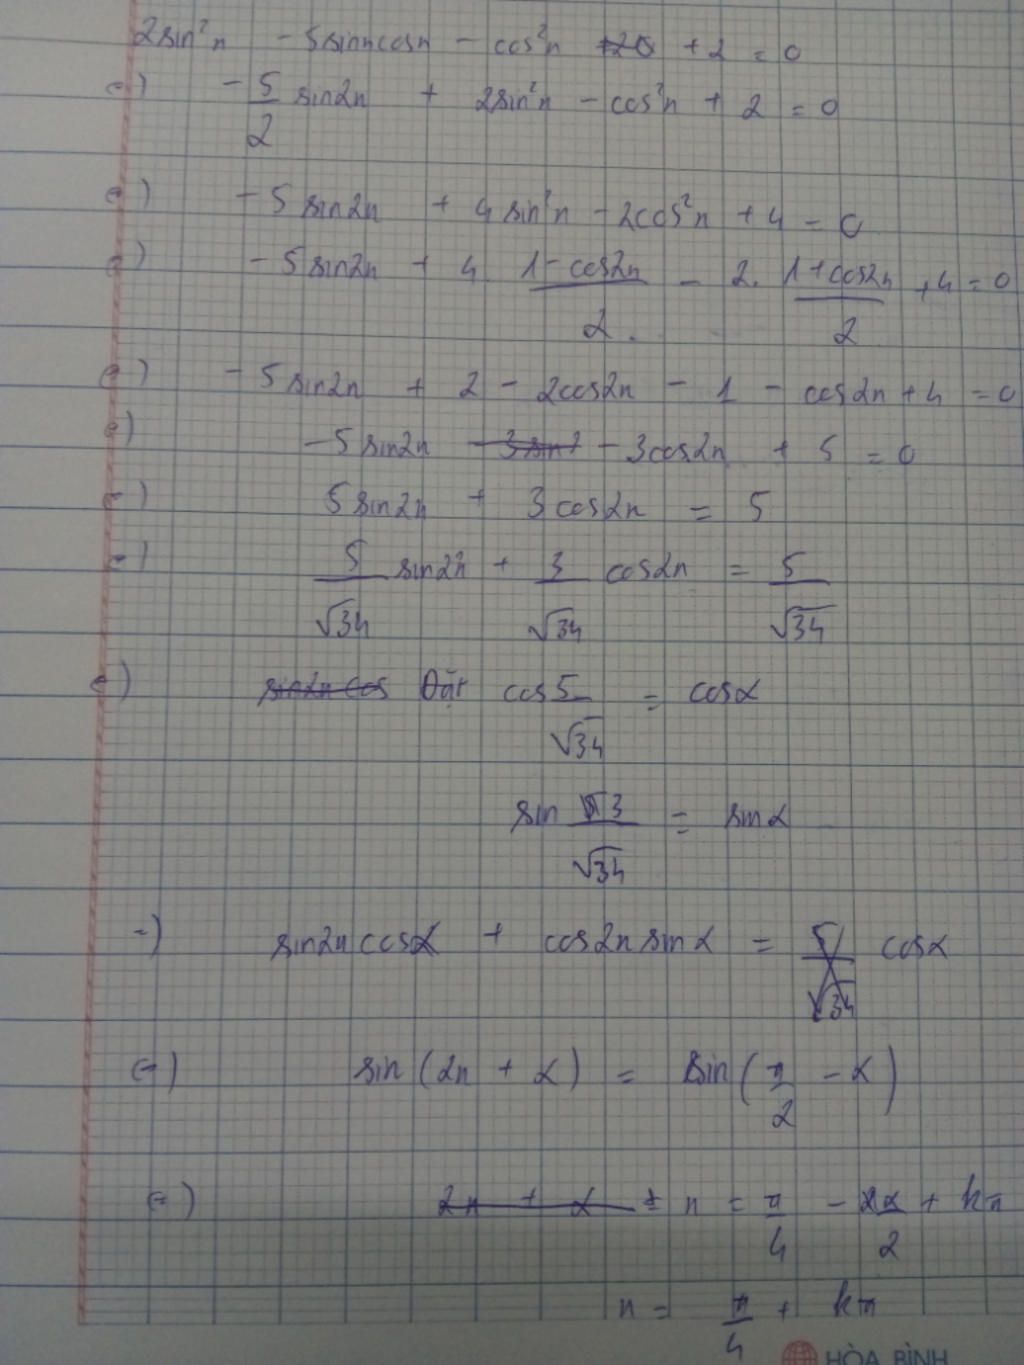 2sin²x - 5sinxcosx - cos²x + 2 = 0
<=> -5/2 sin2x + 2sin²x - cos²x + 2 = 0
<=> -5sin2x + 4sin²x - 2cos²x + 4 = 0
<=> -5sin2x + 4 (1-cos2x)/2 - 2. (1+cos2x)/2 + 4 = 0
<=> -5sin2x + 2 - 2cos2x - 1 - cos2x + 4 = 0
<=> -5sin2x - 3cos2x + 5 = 0
<=> 5sin2x + 3cos2x = 5
<=> 5/√34 sin2x + 3/√34 cos2x = 5/√34
<=> Đặt cos 5/√34 = cosα
sin 3/√34 = sinα
=> sin2x cosα + cos2x sinα = cosα
<=> sin(2x + α) = sin(π/2 - α)
<=> x = π/4 - 2α/2 + kπ
x = π/4 + kπ
HÒA BÌNH